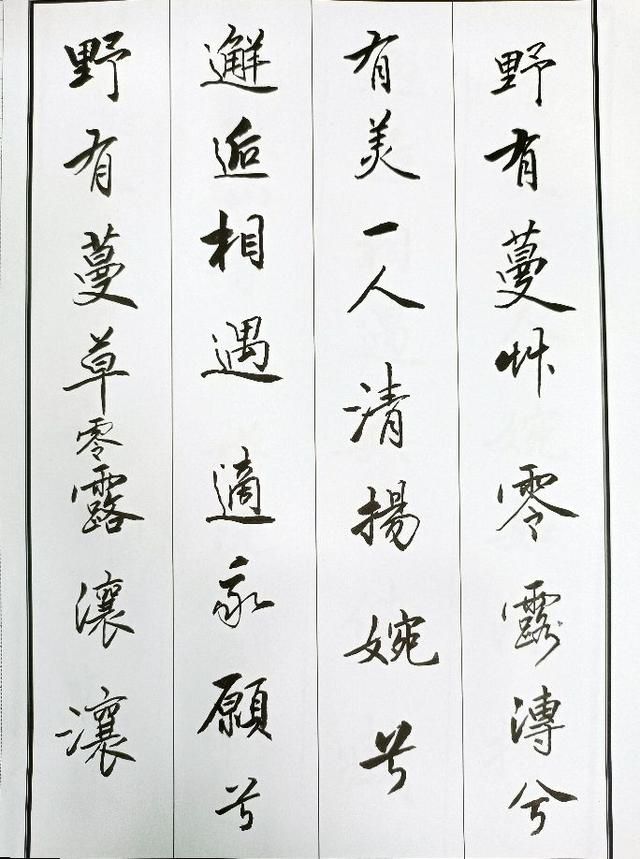 野有蔓艸零露漙兮
有美一人清揚婉兮
邂逅相遇適我願兮
野有蔓草零露瀼瀼